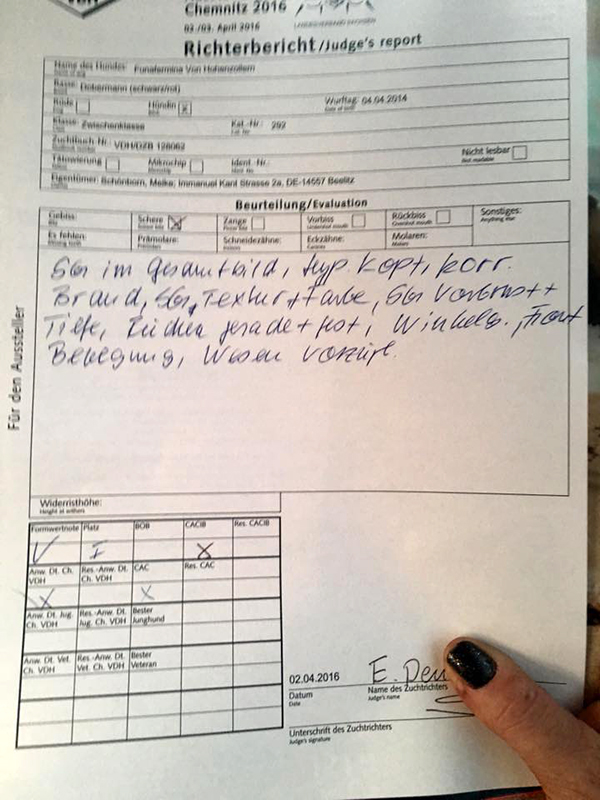 Chemnitz 2016
02./03. April 2016
Richterbericht/Judge's report
Name des Hundes: Von Hohenzollern
Rasse: Dobermann (schwarz/rot)
Rüde Hündin x Wurftag: 04.04.2014
Klasse: Zwischenklasse Kat.-Nr.: 292
Zuchtbuch-Nr.: VDH/DZB 128062
Tätowierung Mikrochip Ident.-Nr.: Nicht lesbar
Eigentümer: Schönborn, Meike; Immanuel Kant Strasse 2a, DE-14557 Beelitz
Beurteilung/Evaluation
Gebiss: Schere X Zange Vorbiss Rückbiss Sonstiges:
Es fehlen: Prämolare: Schneidezähne: Eckzähne: Molaren:
Für den Aussteller
im Gesamtbild, typ. Kopf, korr.
Brand, Textur + Farbe, Vorbrust +
Tiefe, Rücken gerade + fest, Winkelg., Front
Bewegung, Wesen vorzügl.
Widerristhöhe:
Height at withers
Formwertnote Platz BOB CACIB Res. CACIB
V I X
Anw. Dt. Ch. VDH Res.-Anw. Dt. Ch. VDH CAC Res. CAC
X X
Anw. Dt. Jug. Ch. VDH Res.-Anw. Dt. Jug. Ch. VDH Bester Junghund
Anw. Dt. Vet. Ch. VDH Res.-Anw. Dt. Vet. Ch. VDH Bester Veteran
02.04.2016 E.
Datum Name des Zuchtrichters
Date Judge's name
Unterschrift des Zuchtrichters
Judge's signature